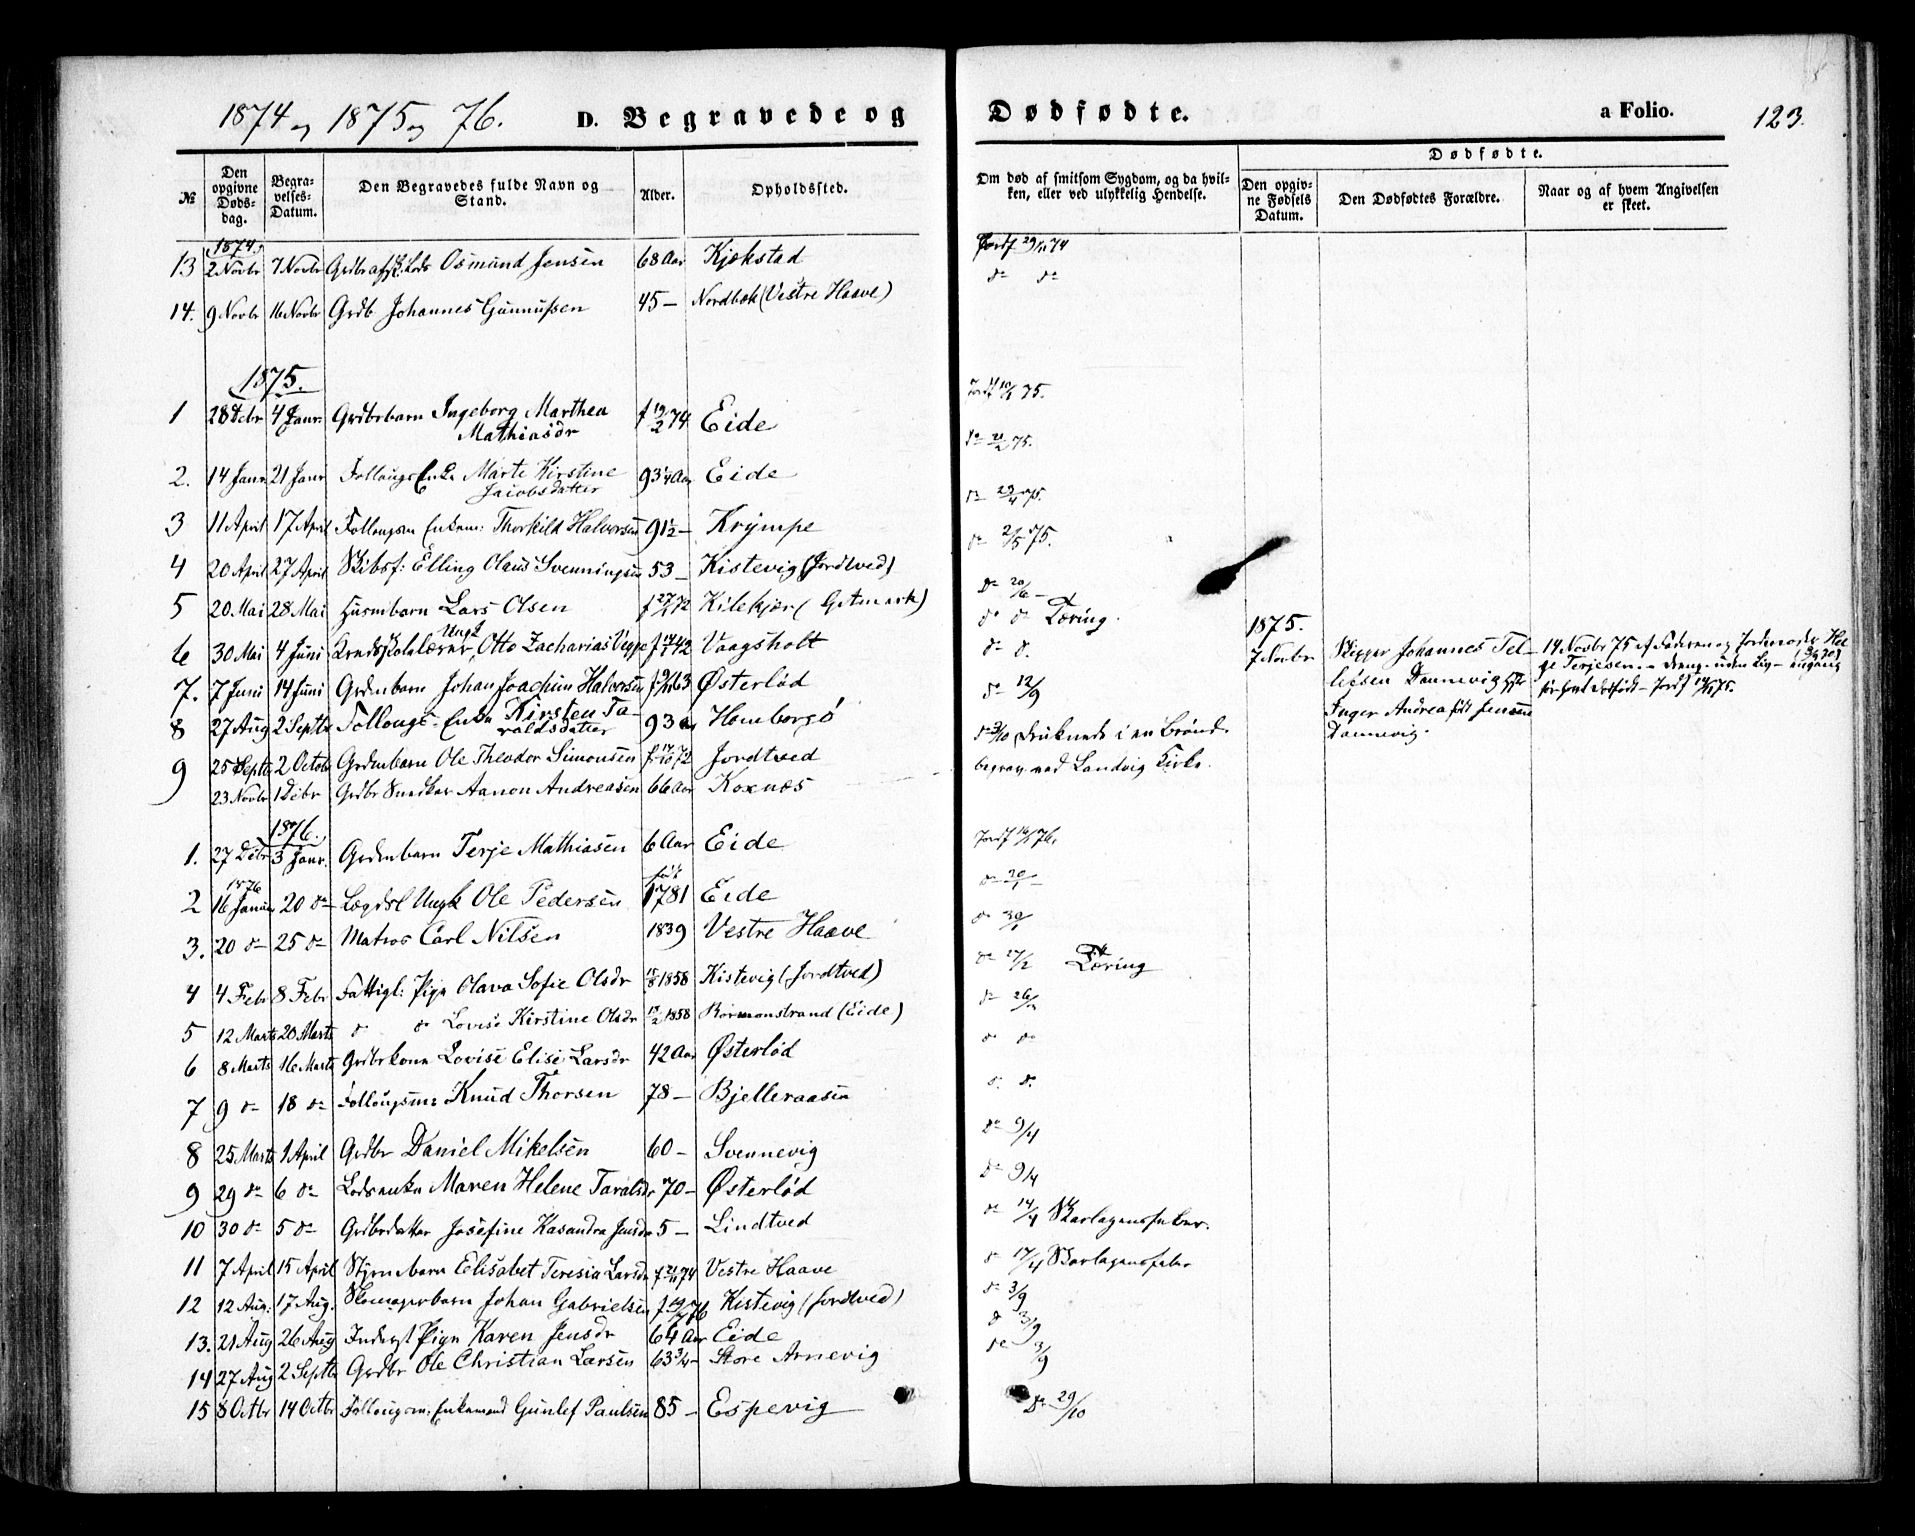 1874 og 1875 og 76. D. Begravede og Dødfødte. a Folio. 123.
№ Den opgivne Dødsdag. Begravelses-Datum. Den Begravedes fulde Navn og Stand. Alder. Opholdssted. Om død af smitsom Sygdom, og da hvilken, eller ved ulykkelig Hendelse. Dødfødte. Den opgivne Fødsels Datum. Den Dødfødtes Forældre. Naar og af hvem Angivelsen er skeet.
1874.
13 2 Novbr 7 Novbr Grdbr afsk. Lods Osmund Jensen 68 Aar Kjøkstad Jordf 29/11 74
14. 9 Novbr 16 Novbr Grdb Johannes Gunnufsen 45 — Nordbøk (Vestre Haave) do do
1875.
1 28 Debr 4 Janr. Grdbrbarn Ingeborg Marthea Mathiasdr f 19/2 74 Eide Jordf 10/1 75.
2. 14 Janr 21 Janr Follougs Enke Marte Kirstine Jacobsdatter 93 1/4 Aar Eide
3 11 April 17 April Follougsm Enkem: Thorkild Halvorsen 91 1/2 — Krympe
4 20 April 27 April Skibsf: Elling Olaus Svenningsen 53 — Kistevig (Jordtved) do 2/5 75.
5 20. Mai 28 Mai Husmbarn Lars Olsen Kilekjær (Gitmark) do 20/6 —
6 30 Mai 4 Juni Kredsskolelærer, Ungk Otto Zacharias Vegge Vaagsholt do do Tæring.
7. 7 Juni 14 Juni Grdmbarn Johan Joachim Halvorsen Østerlød do do
8 27 Aug 2 Septbr Follougs-Enke Kirsten Taraldsdatter 93 Aar Homborgö do 12/9
9 25 Septbr 2 Octob Grdmbarn Ole Theodor Simonsen f 17/10 72 Jordtved do 3/10 Druknede i en Brønd.
23 Novbr 1 Debr Grdbr Snedker Aanon Andreasen 66 Aar Koxnæs begrav. ved Landvig Kirke.
1875.
7 Novbr Skipper Johannes Tellefsen Dannevig Hstr Inger Andrea født Jensen Dannevig.
14 Novbr 75 af Faderen og Jordemoder Helge Terjesen. — Dreng — uden Liv — for født dødfødt — Jordf 14/11 75.
1876.
1. 27 Debr 3 Janr. Grdmbarn Terje Mathiasen 6 Aar Eide Jordf 16/1 76.
1876
2 16 Januar 20 do Lægdsl Ungk Ole Pedersen født 1781 Eide do 20/1 —
3. 20 do 25 do Matros Carl Nilsen 1839 Vestre Haave do 30/1
4 4 Febr 8 Febr Fattigl: Pige Olava Sofie Olsdr 15/8 1858 Kistevig (Jordtved) do 27/2 Tæring
5 12 Marts 20 Marts do do Lovise Kirstine Olsdr 1858 Rormonstrand (Eide) do 26/3
6 8 Marts 16 Marts Grdbrkone Lovise Elise Larsdr 42 Aar Østerlød do do
7 9 do 18 do Follougsm: Knud Thorsen 78 — Bjelleraasen do do
8 25 Marts 1 April Grdbr Daniel Mikelsen 60 — Svennevig do 9/4
9 29 do 6 do Lodsenke Maren Helene Taraldsdr 70 — Østerlød do 9/4
10 30 do 5 do Grdbrdatter Josefine Kasandra Jensdr 5 — Lindtved do 14/4 Skarlagensfeber.
11 7 April 15 April Styrmbarn Elisabet Teresia Larsdr f 21/11 74 Vestre Haave do 17/4 Skarlagensfeber
12 12 Aug. 17 Aug. Skomagerbarn Johan Gabrielsen Kistevig (Jordtved) do 3/9
13. 21 Aug 26 Aug Inderst Pige Karen Jensdr 64 Aar Eide do 3/9
14 27 Aug 2 Septbr Grdbr Ole Christian Larsen 63 3/4 — Store Arnevig do 3/9
15 8 Octbr 14 Octbr Follougsm: Enkemand Gunlef Paulsen 85 — Espevig do 29/10